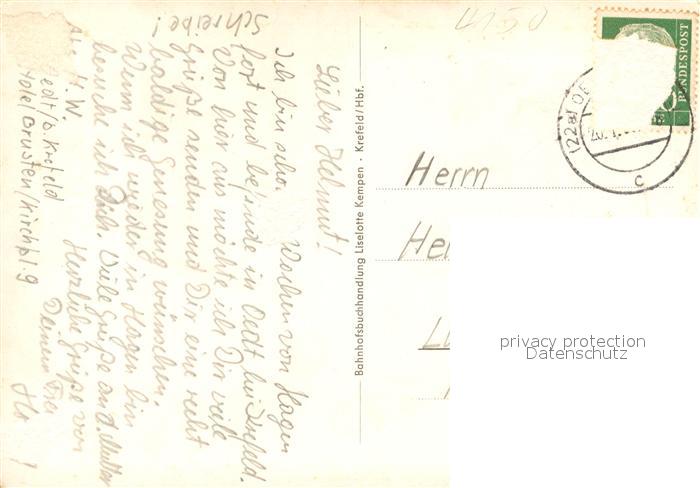 Schreibe!
Lieber Helmut!
Ich bin schon Wochen von Hagen
fort und befinde in Oedt bei Krefeld.
Von hier aus möchte ich Dir viele
Grüße senden und Dir eine recht
baldige Genesung wünschen.
Wenn ich wieder in Hagen bin
besuche ich Dich. Viele Grüße an d. Mutter
Herzliche Grüße von
Deinem
H. W.
edt/b. Krefeld
Brusten/Kirchpl. 9
Bahnhofsbuchhandlung Liselotte Kempen · Krefeld/Hbf.
4150
BUNDESPOST
(22a) OE
c
Herrn
He
L
privacy protection
Datenschutz